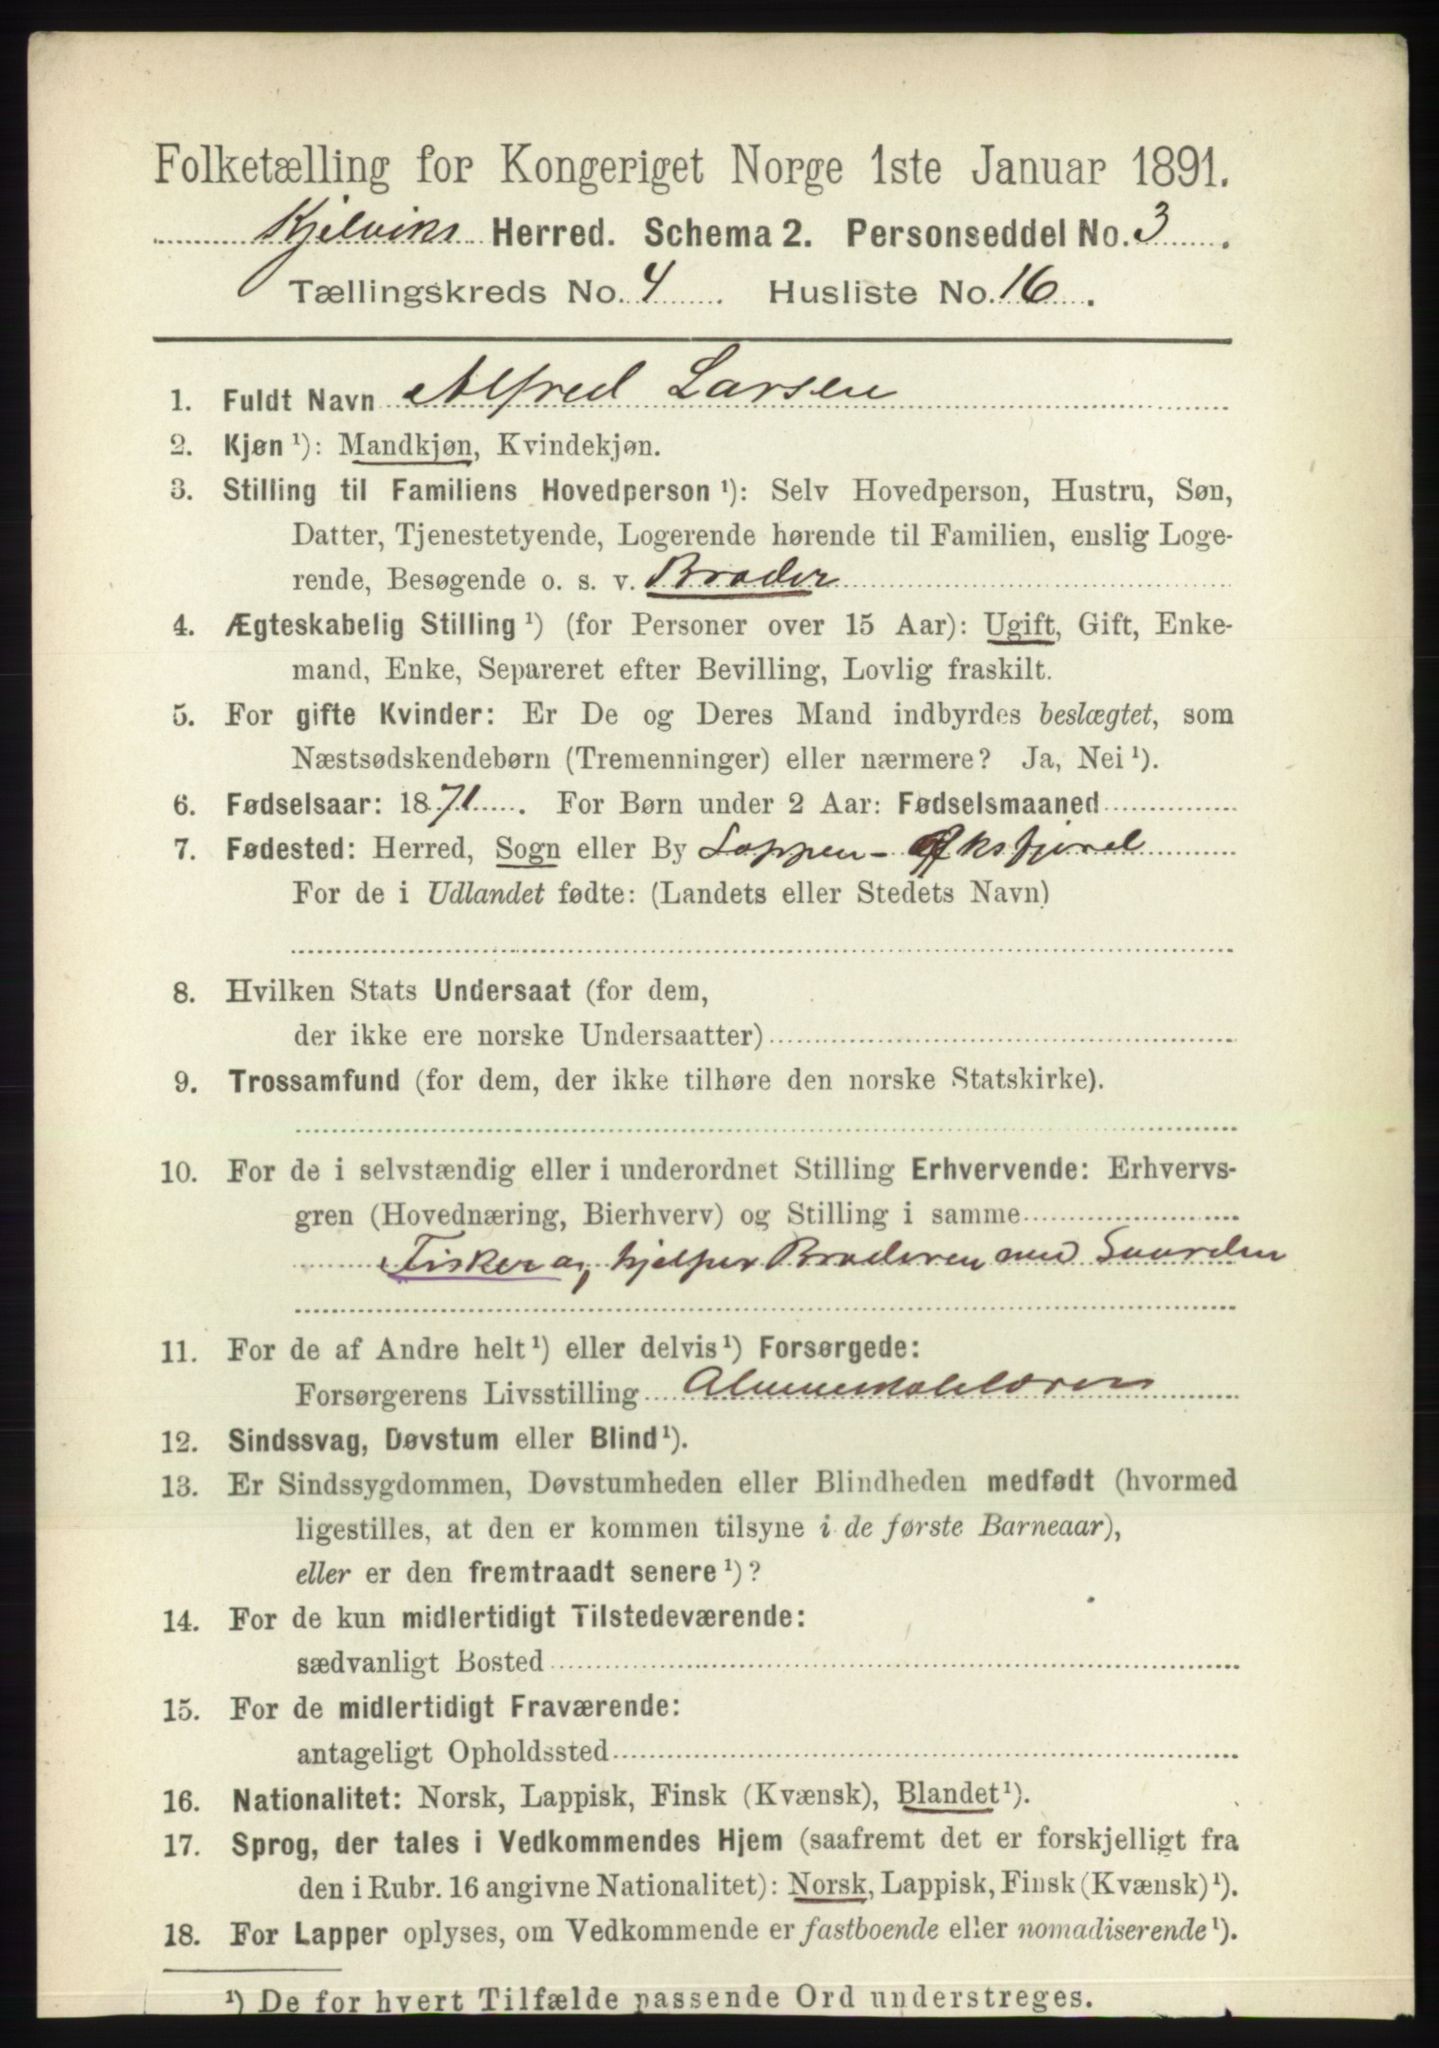 Folketælling for Kongeriget Norge 1ste Januar 1891.
Kjelviks Herred. Schema 2. Personseddel No. 3.
Tællingskreds No. 4. Husliste No. 16.
1. Fuldt Navn Alfred Larsen
2. Kjøn ¹): Mandkjøn, Kvindekjøn.
3. Stilling til Familiens Hovedperson ¹): Selv Hovedperson, Hustru, Søn,
Datter, Tjenestetyende, Logerende hørende til Familien, enslig Loge-
rende, Besøgende o. s. v. Broder
4. Ægteskabelig Stilling ¹) (for Personer over 15 Aar): Ugift, Gift, Enke-
mand, Enke, Separeret efter Bevilling, Lovlig fraskilt.
5. For gifte Kvinder: Er De og Deres Mand indbyrdes beslægtet, som
Næstsødskendebørn (Tremenninger) eller nærmere? Ja, Nei ¹).
6. Fødselsaar: 1871. For Børn under 2 Aar: Fødselsmaaned
7. Fødested: Herred, Sogn eller By Loppen - Øksfjord
For de i Udlandet fødte: (Landets eller Stedets Navn)
8. Hvilken Stats Undersaat (for dem,
der ikke ere norske Undersaatter)
9. Trossamfund (for dem, der ikke tilhøre den norske Statskirke).
10. For de i selvstændig eller i underordnet Stilling Erhvervende: Erhvervs-
gren (Hovednæring, Bierhverv) og Stilling i samme
Fisker og hjelper Broderen med Gaarden
11. For de af Andre helt ¹) eller delvis ¹) Forsørgede:
Forsørgerens Livsstilling
12. Sindssvag, Døvstum eller Blind ¹).
13. Er Sindssygdommen, Døvstumheden eller Blindheden medfødt (hvormed
ligestilles, at den er kommen tilsyne i de første Barneaar),
eller er den fremtraadt senere ¹)?
14. For de kun midlertidigt Tilstedeværende:
sædvanligt Bosted
15. For de midlertidigt Fraværende:
antageligt Opholdssted
16. Nationalitet: Norsk, Lappisk, Finsk (Kvænsk), Blandet ¹).
17. Sprog, der tales i Vedkommendes Hjem (saafremt det er forskjelligt fra
den i Rubr. 16 angivne Nationalitet): Norsk, Lappisk, Finsk (Kvænsk) ¹).
18. For Lapper oplyses, om Vedkommende er fastboende eller nomadiserende ¹).
¹) De for hvert Tilfælde passende Ord understreges.